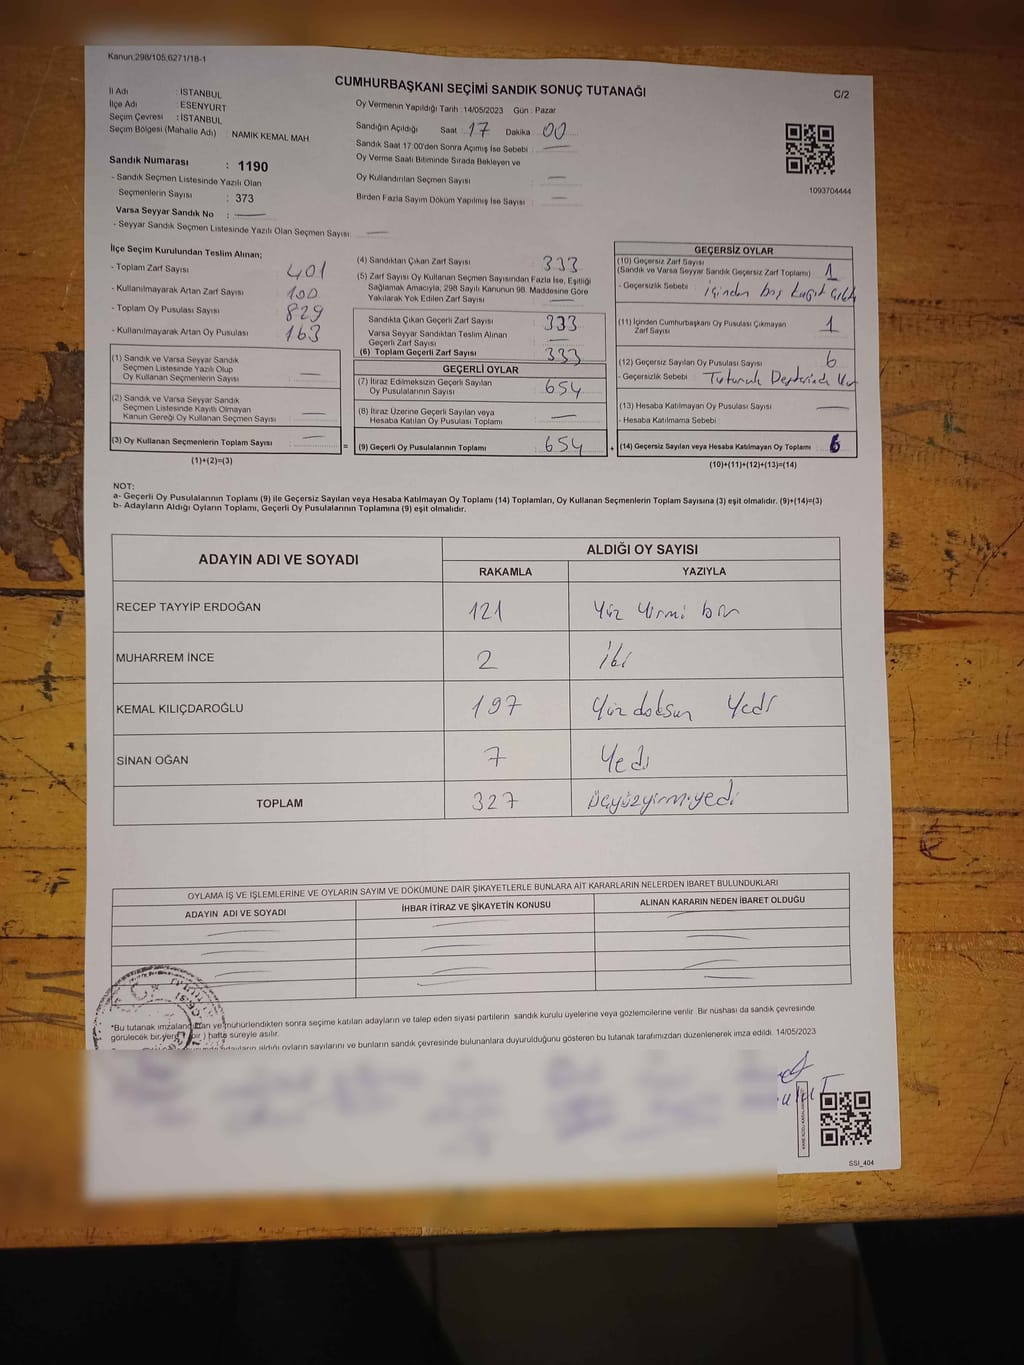 Kanun:298/105,6271/18-1
CUMHURBAŞKANI SEÇİMİ SANDIK SONUÇ TUTANAĞI
C/2
İl Adı : İSTANBUL
İlçe Adı : ESENYURT
Seçim Çevresi : İSTANBUL
Seçim Bölgesi (Mahalle Adı) : NAMIK KEMAL MAH.
Sandık Numarası : 1190
- Sandık Seçmen Listesinde Yazılı Olan
Seçmenlerin Sayısı : 373
Varsa Seyyar Sandık No :
- Seyyar Sandık Seçmen Listesinde Yazılı Olan Seçmen Sayısı:
Oy Vermenin Yapıldığı Tarih :14/05/2023 Gün : Pazar
Sandığın Açıldığı Saat 17 Dakika 00
Sandık Saat 17.00'den Sonra Açımış İse Sebebi :
Oy Verme Saati Bitiminde Sırada Bekleyen ve
Oy Kullandırılan Seçmen Sayısı :
Birden Fazla Sayım Döküm Yapılmış İse Sayısı :
1093704444
İlçe Seçim Kurulundan Teslim Alınan;
- Toplam Zarf Sayısı : 401
- Kullanılmayarak Artan Zarf Sayısı : 100
- Toplam Oy Pusulası Sayısı : 829
- Kullanılmayarak Artan Oy Pusulası : 163
(1) Sandık ve Varsa Seyyar Sandık
Seçmen Listesinde Yazılı Olup
Oy Kullanan Seçmenlerin Sayısı :
(2) Sandık ve Varsa Seyyar Sandık
Seçmen Listesinde Kayıtlı Olmayan
Kanun Gereği Oy Kullanan Seçmen Sayısı :
(3) Oy Kullanan Seçmenlerin Toplam Sayısı :
(1)+(2)=(3)
(4) Sandıktan Çıkan Zarf Sayısı : 333
(5) Zarf Sayısı Oy Kullanan Seçmen Sayısından Fazla İse, Eşitliği
Sağlamak Amacıyla, 298 Sayılı Kanunun 98. Maddesine Göre
Yakılarak Yok Edilen Zarf Sayısı :
Sandıkta Çıkan Geçerli Zarf Sayısı : 333
Varsa Seyyar Sandıktan Teslim Alınan
Geçerli Zarf Sayısı :
(6) Toplam Geçerli Zarf Sayısı : 333
GEÇERLİ OYLAR
(7) İtiraz Edilmeksizin Geçerli Sayılan
Oy Pusulalarının Sayısı : 654
(8) İtiraz Üzerine Geçerli Sayılan veya
Hesaba Katılan Oy Pusulası Toplamı :
= (9) Geçerli Oy Pusulalarının Toplamı : 654
GEÇERSİZ OYLAR
(10) Geçersiz Zarf Sayısı
(Sandık ve Varsa Seyyar Sandık Geçersiz Zarf Toplamı) : 1
- Geçersizlik Sebebi : içinden boş kağıt çıktı
(11) İçinden Cumhurbaşkanı Oy Pusulası Çıkmayan
Zarf Sayısı : 1
(12) Geçersiz Sayılan Oy Pusulası Sayısı : 6
- Geçersizlik Sebebi : Tutanak Defterinde Var
(13) Hesaba Katılmayan Oy Pusulası Sayısı :
- Hesaba Katılmama Sebebi :
+ (14) Geçersiz Sayılan veya Hesaba Katılmayan Oy Toplamı : 6
(10)+(11)+(12)+(13)=(14)
NOT:
a- Geçerli Oy Pusulalarının Toplamı (9) ile Geçersiz Sayılan veya Hesaba Katılmayan Oy Toplamı (14) Toplamları, Oy Kullanan Seçmenlerin Toplam Sayısına (3) eşit olmalıdır. (9)+(14)=(3)
b- Adayların Aldığı Oyların Toplamı, Geçerli Oy Pusulalarının Toplamına (9) eşit olmalıdır.
ADAYIN ADI VE SOYADI ALDIĞI OY SAYISI
RAKAMLA YAZIYLA
RECEP TAYYİP ERDOĞAN 121 Yüz Yirmi bir
MUHARREM İNCE 2 iki
KEMAL KILIÇDAROĞLU 197 Yüz doksan Yedi
SİNAN OĞAN 7 Yedi
TOPLAM 327 üçyüzyirmiyedi
OYLAMA İŞ VE İŞLEMLERİNE VE OYLARIN SAYIM VE DÖKÜMÜNE DAİR ŞİKAYETLERLE BUNLARA AİT KARARLARIN NELERDEN İBARET BULUNDUKLARI
ADAYIN ADI VE SOYADI İHBAR İTİRAZ VE ŞİKAYETİN KONUSU ALINAN KARARIN NEDEN İBARET OLDUĞU
*Bu tutanak imzalandıktan ve mühürlendikten sonra seçime katılan adayların ve talep eden siyasi partilerin sandık kurulu üyelerine veya gözlemcilerine verilir. Bir nüshası da sandık çevresinde
görülecek bir yere (bir) hafta süreyle asılır.
aldığı oyların sayılarını ve bunların sandık çevresinde bulunanlara duyurulduğunu gösteren bu tutanak tarafımızdan düzenlenerek imza edildi. 14/05/2023
SSI_404